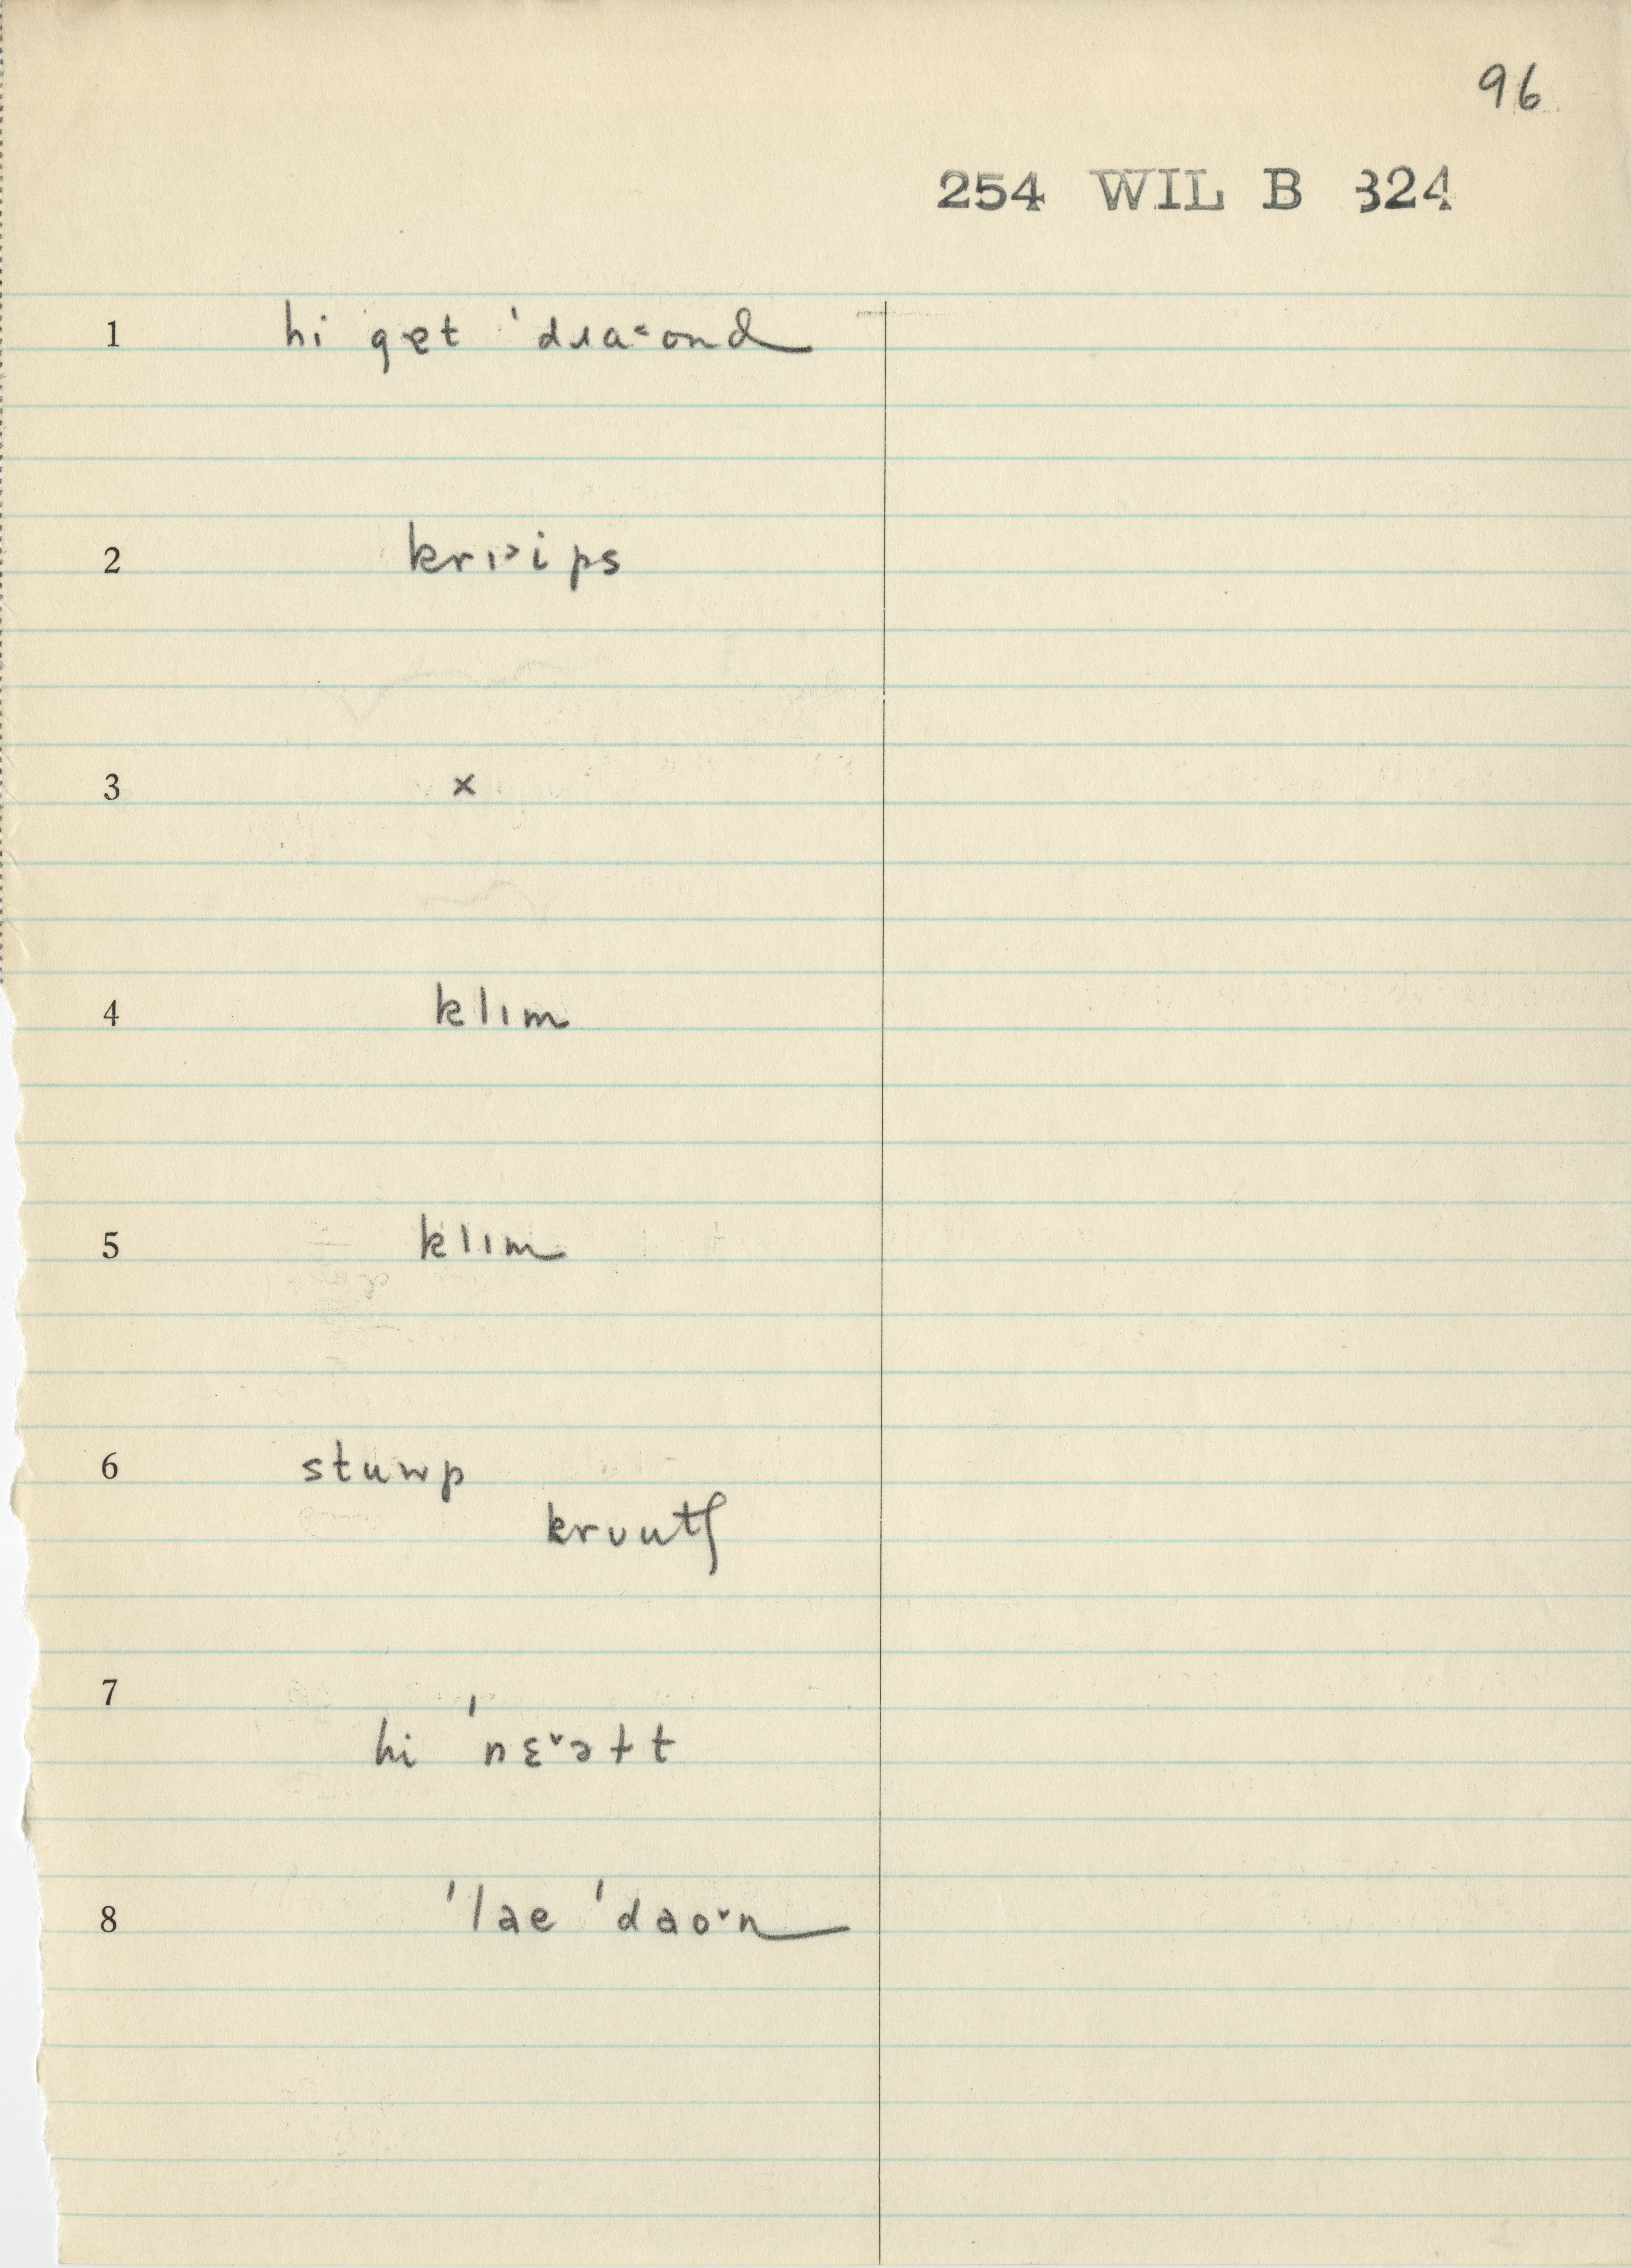 96
254 WIL B 324
1 hi get ˈdɹa˂ond
2 krɪ˃ips
3 x
4 klɪm
5 klɪm
6 stuwp
krʊutʃ
7
hi ˈnɛ˅əɫt
8 ˈlae ˈdao˅n